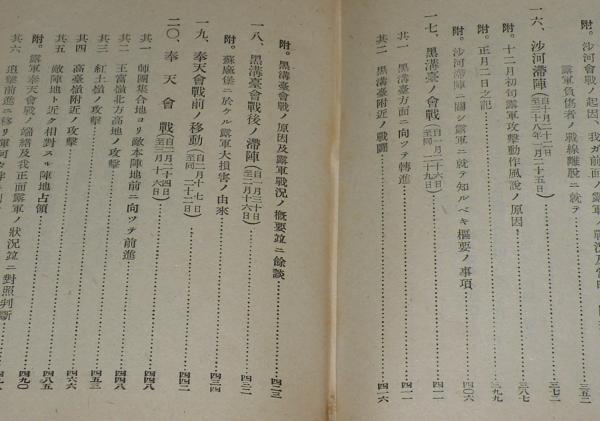 附。沙河會戰ノ起因、我ガ前面ノ露軍ノ狀況及當時
露軍負傷者ノ戰線離脫ニ就テ‥‥三五二
一六、沙河滯陣(自十月二十二日至三十八年一月二十五日)‥‥三七二
附。十二月初旬露軍攻擊動作風說ノ原因‥‥三八七
附。正月二日之記‥‥三九九
附。沙河滯陣ニ關シ露軍ニ就テ知ルベキ樞要ノ事項‥‥四〇六
一七、黑溝臺ノ會戰(自一月二十六日至同二十九日)‥‥四一一
其一 黑溝臺方面ニ向ツテ轉進‥‥四一一
其二 黑溝臺附近ノ戰鬪‥‥四一六
附。黑溝臺會戰ノ原因及露軍戰況ノ槪要竝ニ餘談‥‥四二三
一八、黑溝臺會戰後ノ滯陣(自一月三十日至二月十六日)‥‥四三二
附。蘇麻堡ニ於ケル露軍大損害ノ由來‥‥四三四
一九、奉天會戰前ノ移動(自二月十七日至同二十二日)‥‥四四二
二〇、奉天會戰(自二月二十四日至三月十六日)
其一 師團集合地ヨリ敵本陣地前ニ向ツテ前進‥‥四四八
其二 王富嶺北方高地ノ攻擊‥‥四四八
其三 紅土嶺ノ攻擊‥‥四五三
其四 高臺嶺附近ノ攻擊‥‥四六六
其五 敵陣地ト近ク相對スル陣地占領‥‥四八五
附。露軍奉天會戰ノ端緖及我正面露軍ノ狀況竝ニ對照判斷‥‥四九〇
其六 追擊前進ニ移リ渾河